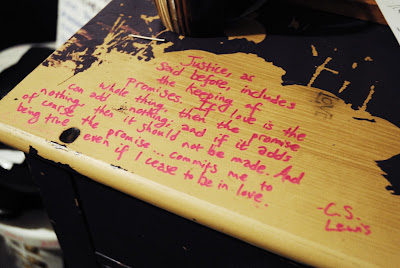 Justice, as
said before, includes
the keeping of
promises. If love is the
whole thing, then the promise
can add nothing; and if it adds
nothing, then it should not be made. And
of course the promise... commits me to
being true even if I cease to be in love.
-C.S.
Lewis